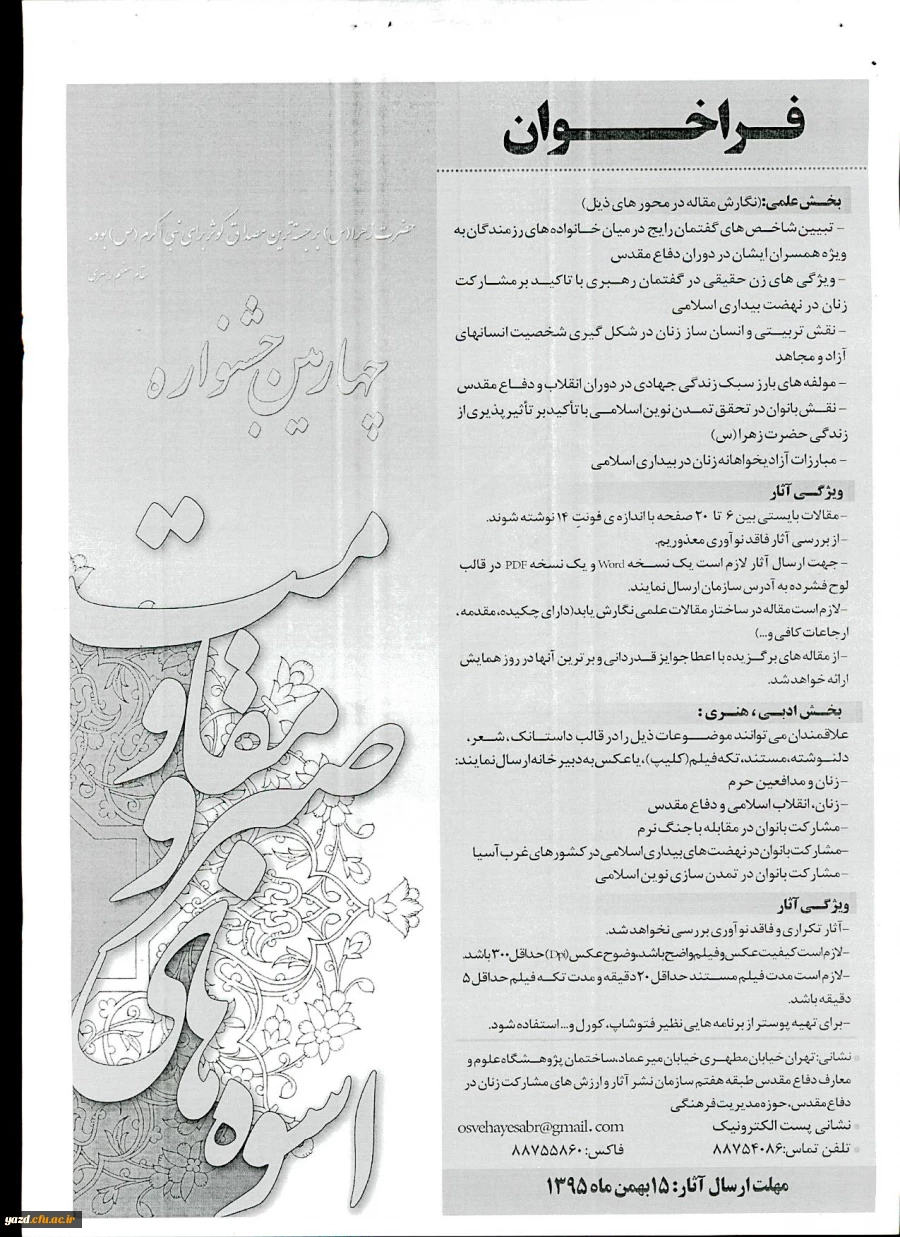 فراخوان
بخش علمی:(نگارش مقاله در محور های ذیل)
- تبیین شاخص های گفتمان رایج در میان خانواده های رزمندگان به
ویژه همسران ایشان در دوران دفاع مقدس
- ویژگی های زن حقیقی در گفتمان رهبری با تاکید بر مشارکت
زنان در نهضت بیداری اسلامی
- نقش تربیتی و انسان ساز زنان در شکل گیری شخصیت انسانهای
آزاد و مجاهد
- مولفه های بارز سبک زندگی جهادی در دوران انقلاب و دفاع مقدس
- نقش بانوان در تحقق تمدن نوین اسلامی با تأکید بر تأثیر پذیری از
زندگی حضرت زهرا (س)
- مبارزات آزادیخواهانه زنان در بیداری اسلامی
ویژگی آثار
-مقالات بایستی بین ۶ تا ۲۰ صفحه با اندازه ی فونت ۱۴ نوشته شوند.
-از بررسی آثار فاقد نوآوری معذوریم.
- جهت ارسال آثار لازم است یک نسخه Word و یک نسخه PDF در قالب
لوح فشرده به آدرس سازمان ارسال نمایند.
-لازم است مقاله در ساختار مقالات علمی نگارش یابد(دارای چکیده، مقدمه،
ارجاعات کافی و...)
-از مقاله های برگزیده با اعطا جوایز قدردانی و برترین آنها در روز همایش
ارائه خواهد شد.
بخش ادبی ، هنری :
علاقمندان می توانند موضوعات ذیل را در قالب داستانک، شعر،
دلنوشته،مستند، تکه فیلم (کلیپ)، یا عکس به دبیر خانه ارسال نمایند:
-زنان و مدافعین حرم
-زنان، انقلاب اسلامی و دفاع مقدس
-مشارکت بانوان در مقابله با جنگ نرم
-مشارکت بانوان در نهضت های بیداری اسلامی در کشورهای غرب آسیا
-مشارکت بانوان در تمدن سازی نوین اسلامی
ویژگی آثار
-آثار تکراری و فاقد نوآوری بررسی نخواهد شد.
-لازم است کیفیت عکس و فیلم واضح باشد،وضوح عکس(Dpi)حداقل ۳۰۰ باشد.
-لازم است مدت فیلم مستند حداقل ۲۰ دقیقه و مدت تکه فیلم حداقل ۵
دقیقه باشد.
-برای تهیه پوستر از برنامه هایی نظیر فتوشاپ، کورل و... استفاده شود.
نشانی: تهران خیابان مطهری خیابان میرعماد،ساختمان پژوهشگاه علوم و
معارف دفاع مقدس طبقه هفتم سازمان نشر آثار و ارزش های مشارکت زنان در
دفاع مقدس، حوزه مدیریت فرهنگی
نشانی پست الکترونیک osvehayesabr@gmail.com
تلفن تماس: ۸۸۷۵۴۰۸۶ فاکس: ۸۸۷۵۵۸۶۰
مهلت ارسال آثار: ۱۵ بهمن ماه ۱۳۹۵
حضرت زهرا(س) برجسته ترین مصداق کوثر برای نبی اکرم (ص) بود.
مقام معظم رهبری
چهارمین جشنواره
اسوه های صبر و مقاومت
yazd.cfu.ac.ir